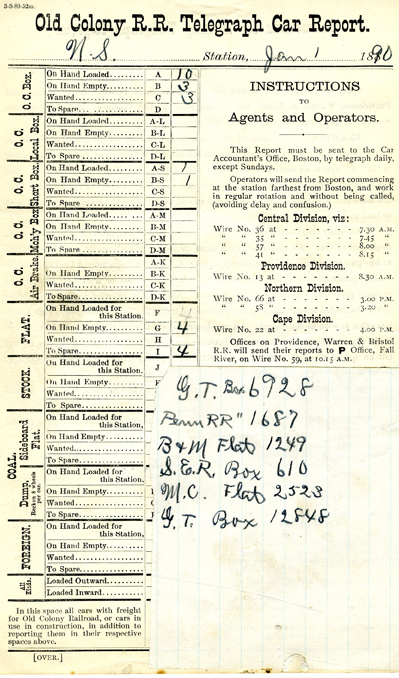 5-9-89-52m.
Old Colony R.R. Telegraph Car Report.
N. S. Station, Jan 1 1890
O. C. Box.
On Hand Loaded A 10
On Hand Empty B 3
Wanted C 3
To Spare D
O. C. Local Box.
On Hand Loaded A-L
On Hand Empty B-L
Wanted C-L
To Spare D-L
O. C. Short Box.
On Hand Loaded A-S 1
On Hand Empty B-S 1
Wanted C-S
To Spare D-S
O. C. Mach'y Box
On Hand Loaded A-M
On Hand Empty B-M
Wanted C-M
To Spare D-M
O. C. Air Brake.
On Hand Loaded A-K
On Hand Empty B-K
Wanted C-K
To Spare D-K
FLAT.
On Hand Loaded for this Station. F 4
On Hand Empty G 4
Wanted H
To Spare I 4
STOCK.
On Hand Loaded for this Station. J
On Hand Empty
Wanted
To Spare
COAL.
Sideboard Flat.
On Hand Loaded for this Station,
On Hand Empty
Wanted
To Spare
Dump. Reckon 8 wheels per car.
On Hand Loaded for this Station,
On Hand Empty
Wanted
To Spare
FOREIGN.
On Hand Loaded for this Station,
On Hand Empty
Wanted
To Spare
All Kinds.
Loaded Outward
Loaded Inward
In this space all cars with freight
for Old Colony Railroad, or cars in
use in construction, in addition to
reporting them in their respective
spaces above.
[OVER.]
INSTRUCTIONS
TO
Agents and Operators.
This Report must be sent to the Car
Accountant's Office, Boston, by telegraph daily,
except Sundays.
Operators will send the Report commencing
at the station farthest from Boston, and work
in regular rotation and without being called,
(avoiding delay and confusion.)
Central Division, viz:
Wire No. 36 at - - - - 7.30 A.M.
" " 35 " - - - - 7.45 "
" " 57 " - - - - 8.00 "
" " 41 " - - - - 8.15 "
Providence Division.
Wire No. 13 at - - - - 8.30 A.M.
Northern Division.
Wire No. 66 at - - - - 3.00 P.M.
" " 58 " - - - - 3.20 "
Cape Division.
Wire No. 22 at - - - - 4.00 P.M.
Offices on Providence, Warren & Bristol
R.R. will send their reports to P Office, Fall
River, on Wire No. 59, at 10.15 A.M.
G. T. Box 6928
Penn RR " 1687
B & M Flat 1249
S. E. R. Box 610
M. C. Flat 2523
G. T. Box 12848